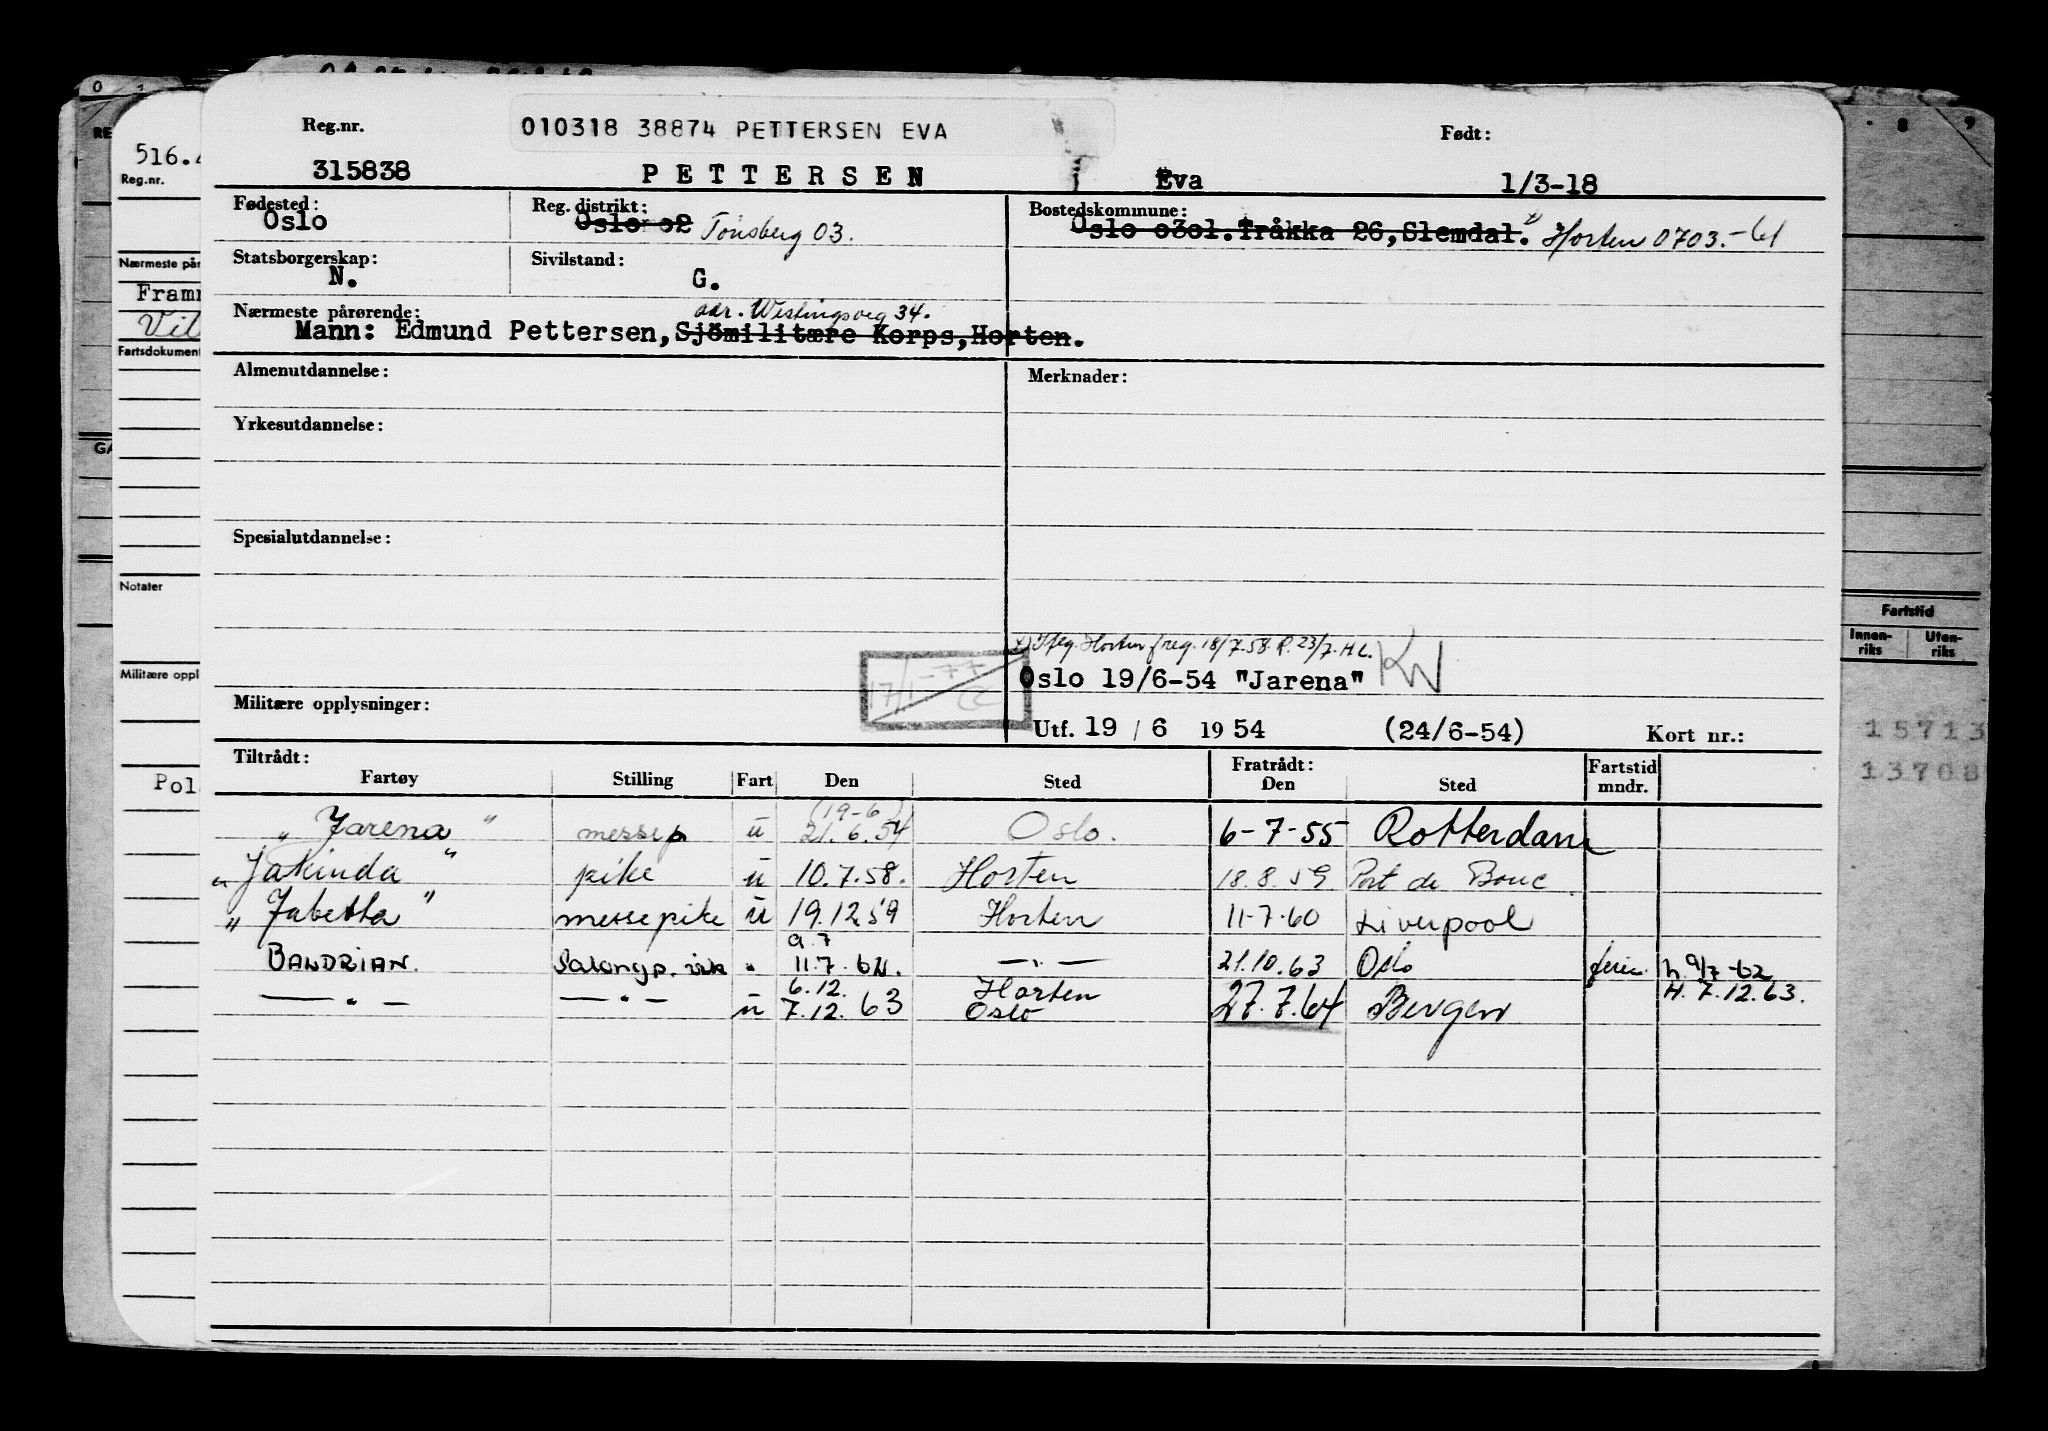 Reg.nr. 010318 38874 PETTERSEN EVA Født:
315838 PETTERSEN Eva 1/3-18
Fødested: Reg. distrikt: Bostedskommune:
Oslo Oslo 02 Tønsberg 03. Oslo o3ol. Tråkka 26, Slemdal. x Horten 0703.-61
Statsborgerskap: Sivilstand:
N. G.
Nærmeste pårørende: adr. Westingsveg 34.
Mann: Edmund Pettersen, Sjömilitære Korps, Horten.
Almenutdannelse: Merknader:
Yrkesutdannelse:
Spesialutdannelse:
x) Horten freg. 18/7.58. R. 23/7. H.L.
17/1-77 Oslo 19/6-54 "Jarena" KW
Militære opplysninger:
Utf. 19 / 6 1954 (24/6-54) Kort nr.:
Tiltrådt: Fratrådt: Fartstid
Fartøy Stilling Fart Den Sted Den Sted mndr.
(19-6)
"Jarena" messep ü 21.6.54 Oslo. 6-7-55 Rotterdam
"Jakinda" pike ü 10.7.58. Horten 18.8.59 Port de Bouc
"Jabetta" messepike ü 19.12.59 Horten 11-7-60 Liverpool
9.7
BALDRIAN. Salongp. " 11.7.62. —"— 21.10.63 Oslo ferie. h. 9/7-62
6.12. Horten H. 7.12.63.
—"— —"— ü 7.12.63 Oslo 27.7.64 Bergen
516.
Reg.nr.
Nærmeste på
Fram
Vil
Fartsdokument
Notater
Militære oppl
Pol
8 9
Fartstid
Innen-
riks
Uten-
riks
15713
13708